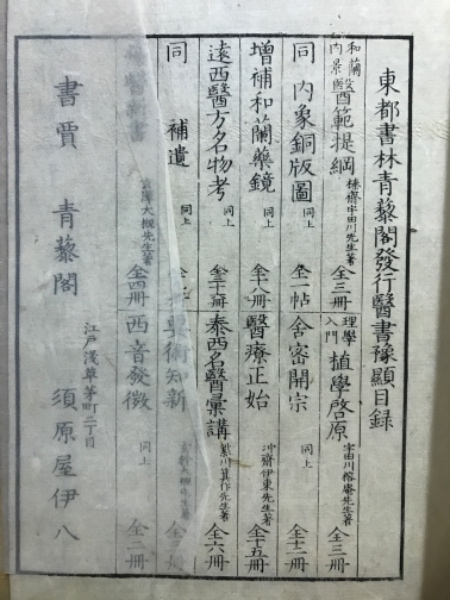 東都書林青藜閣發行醫書豫顯目録
和蘭内景醫範提綱 榛齋宇田川先生著 全三册
理學入門植學啓原 宇田川榕菴先生著 全三册
同 内象銅版圖 同上 全一帖
舍密開宗 同上 全
増補和蘭藥鏡 同上 全十八册
醫療正始 冲齋伊東先生著 全十五册
遠西醫方名物考 同上 全三十六册
泰西名醫彙講 紫川箕作先生著 全六册
同 補遺 同上 全
術知新 先生著 全
書 玄澤大槻先生著 全四册
西音發微 同上 全二册
江戸淺草茅町二丁目
書賈 青藜閣 須原屋伊八